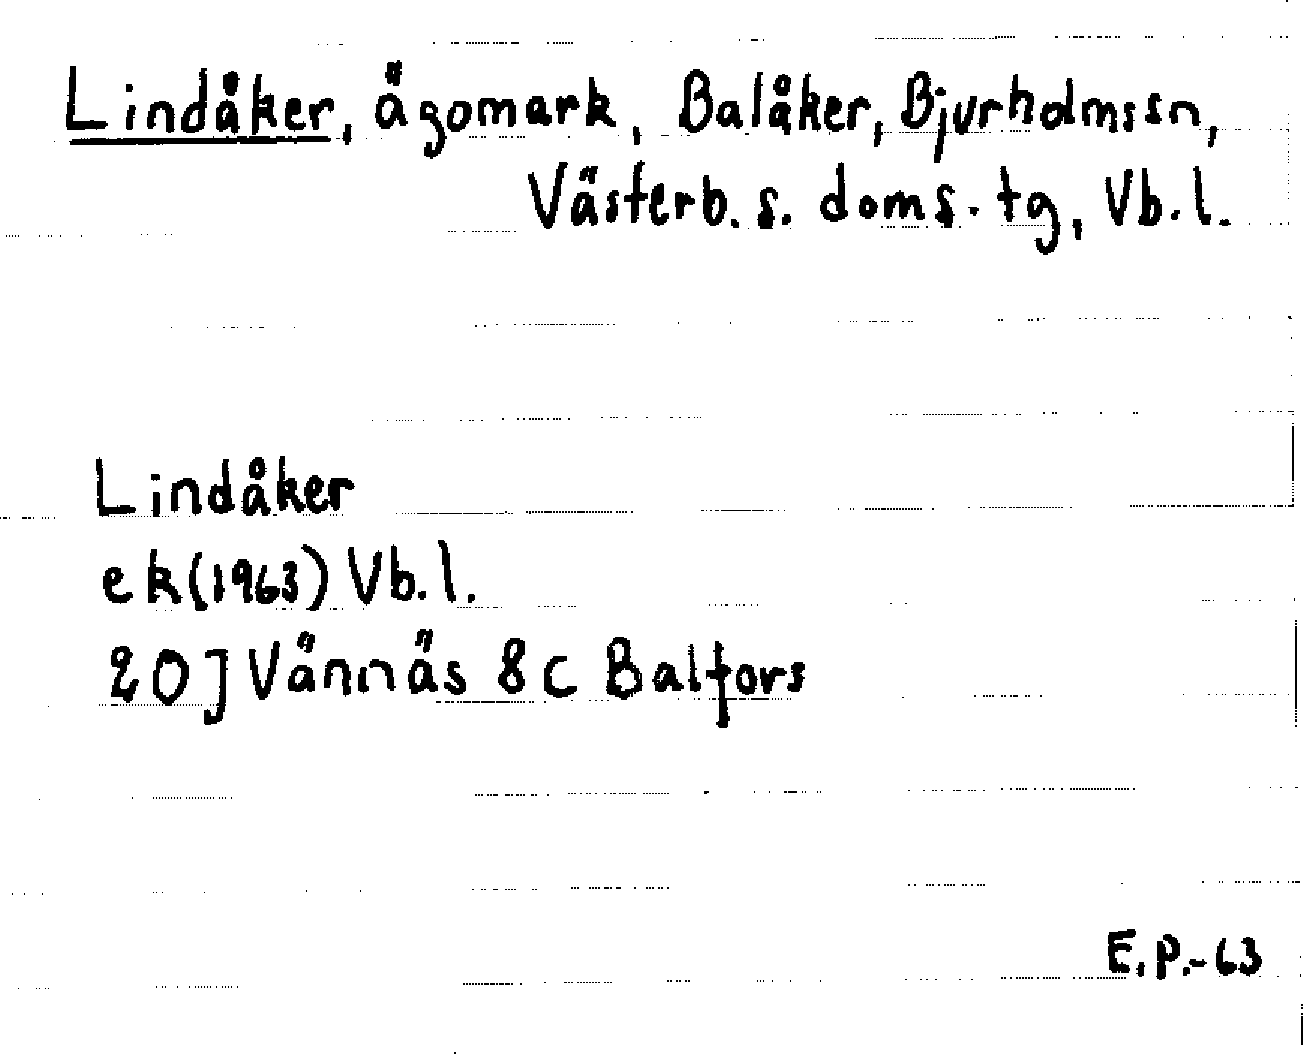 Lindåker, ägomark, Balåker, Bjurholmssn,
Västerb. s. doms. tg, Vb. l.
Lindåker
ek (1963) Vb. l.
20 J Vännäs 8 c Balfors
E. P. - 63